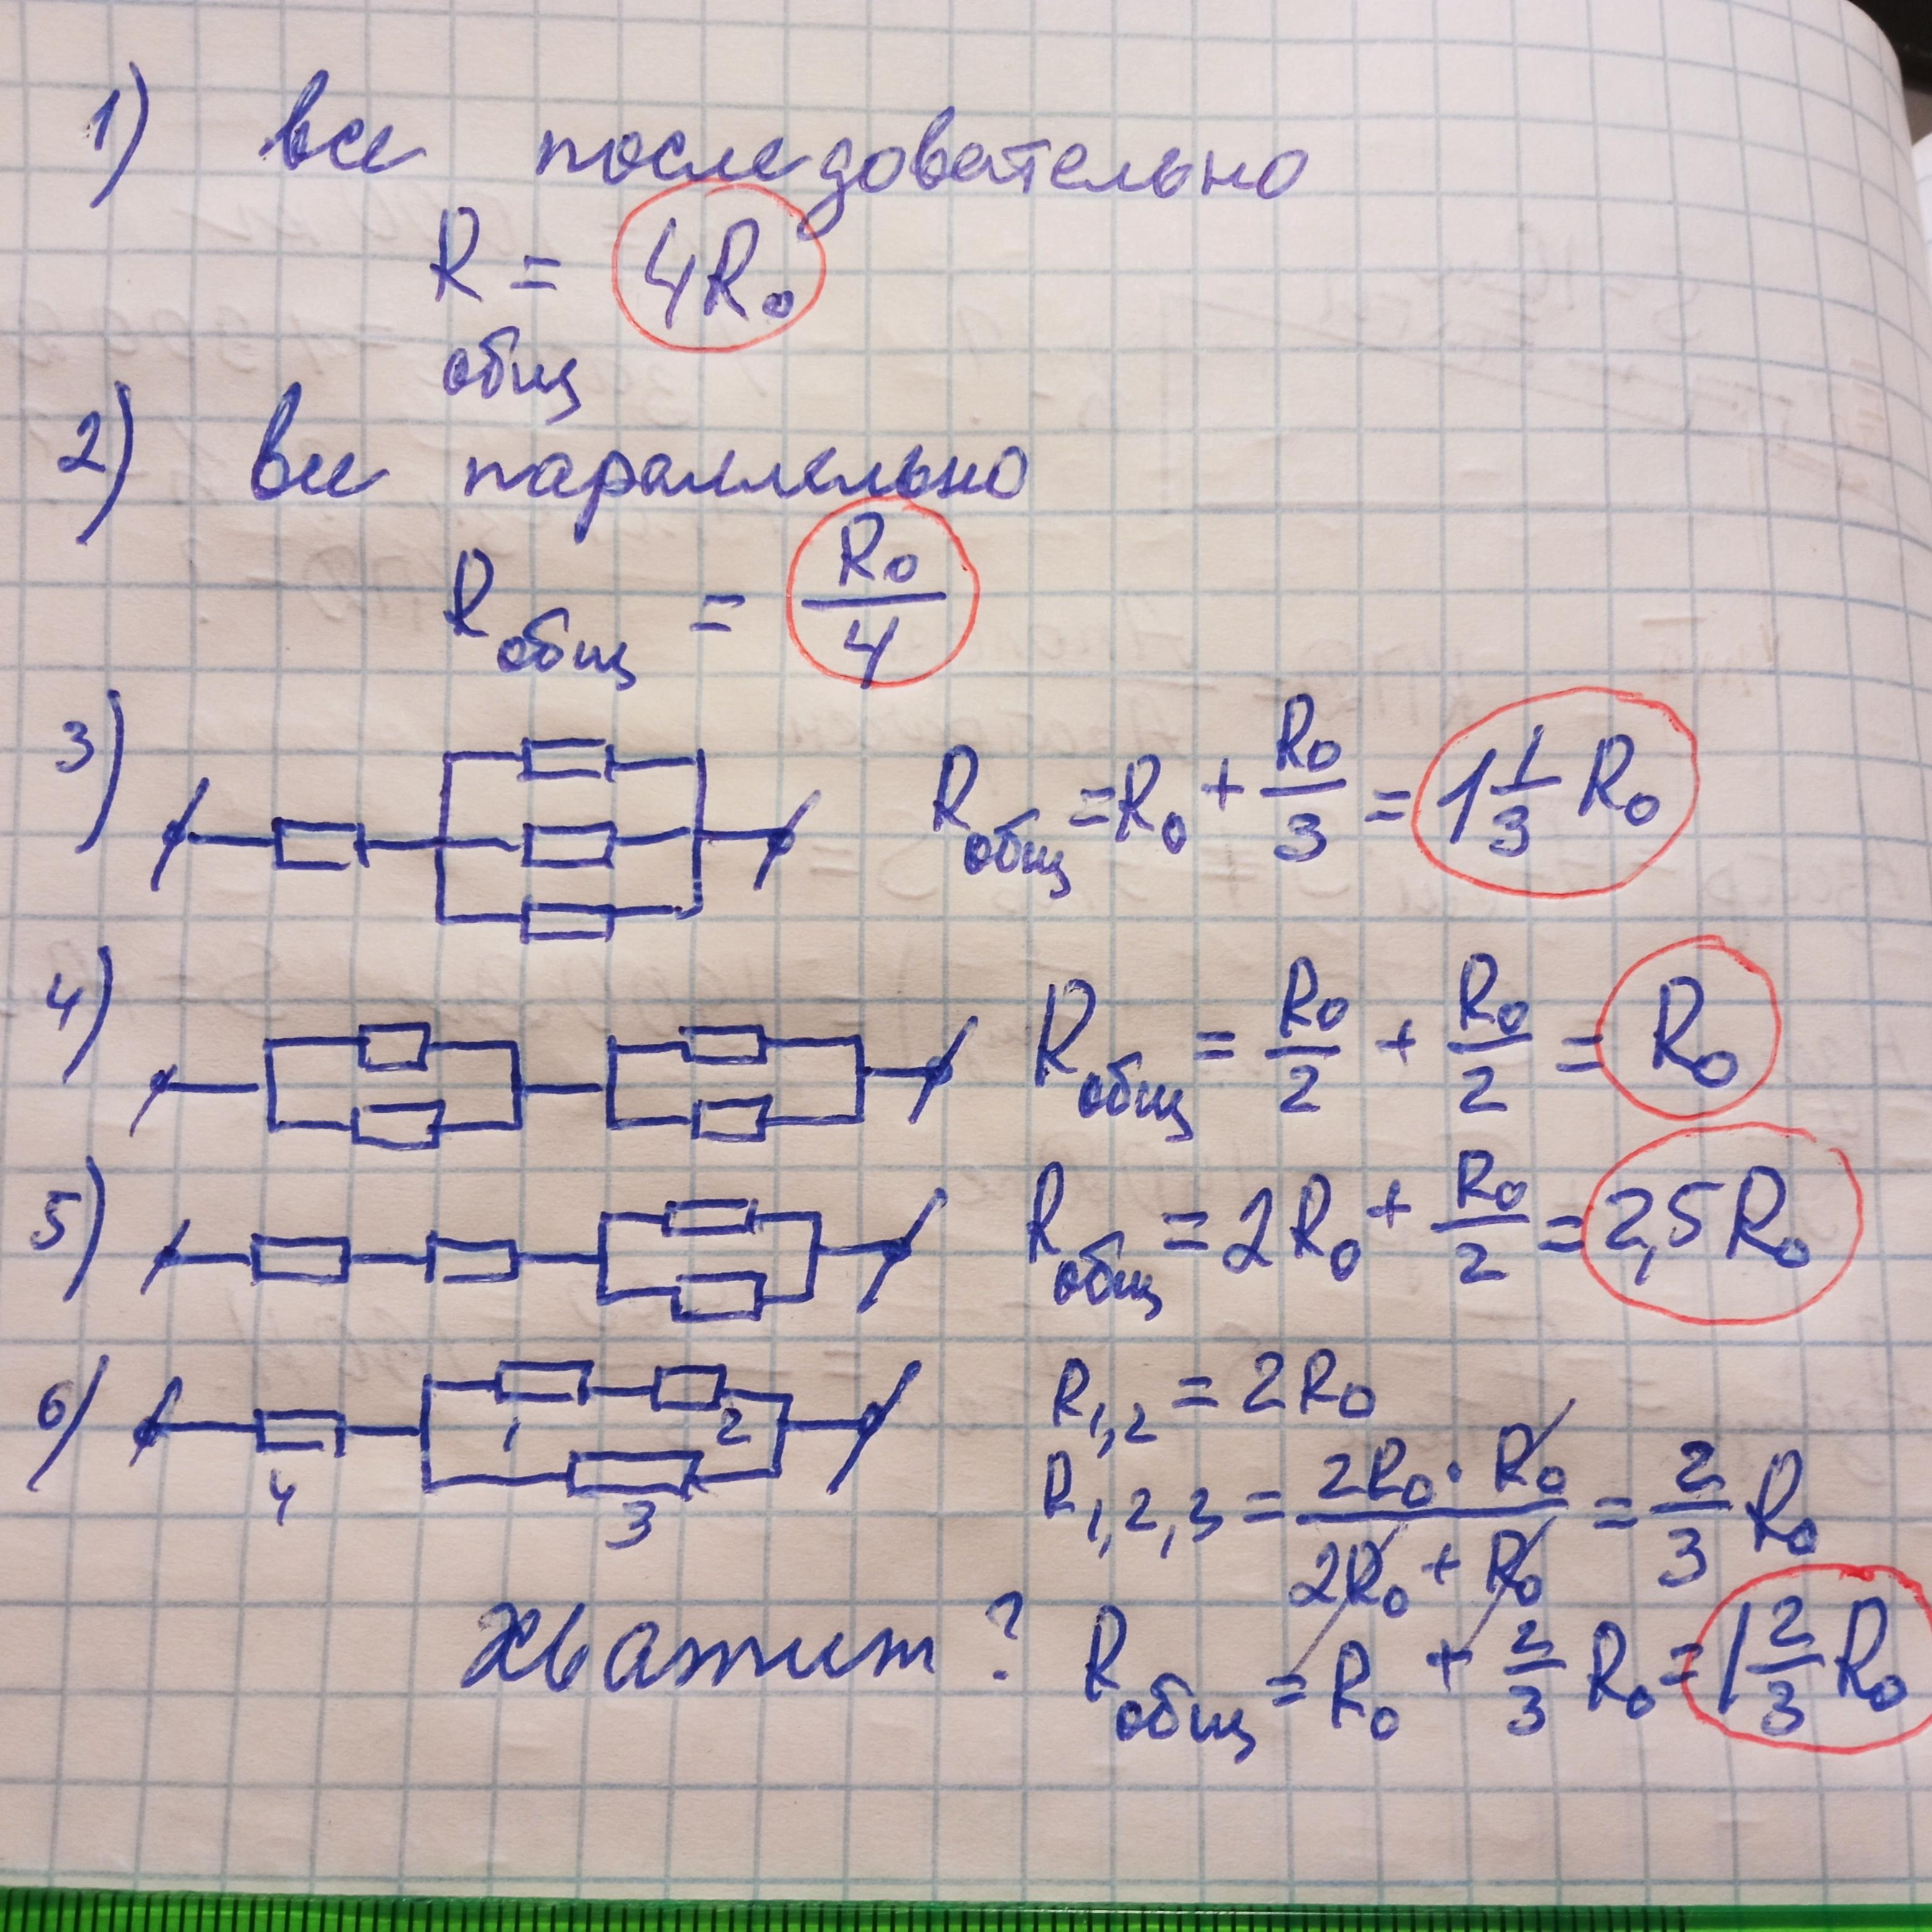 1) все последовательно
R общ = 4R₀
2) все параллельно
R общ = R₀/4
3) R общ = R₀ + R₀/3 = 1 1/3 R₀
4) R общ = R₀/2 + R₀/2 = R₀
5) R общ = 2R₀ + R₀/2 = 2,5R₀
6) 4 1 2 3
R₁,₂ = 2R₀
R₁,₂,₃ = 2R₀·R₀/2R₀+R₀ = 2/3 R₀
Хватит? R общ = R₀ + 2/3 R₀ = 1 2/3 R₀